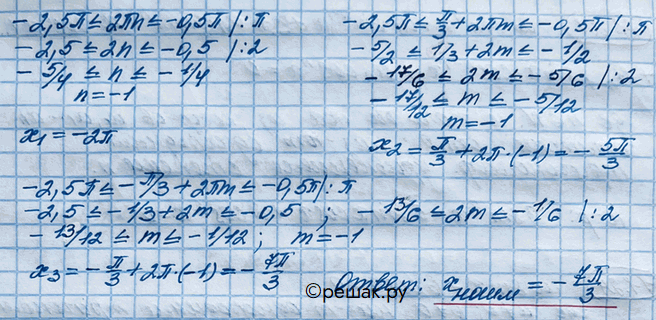 -2,5π ≤ 2πn ≤ -0,5π |:π
-2,5 ≤ 2n ≤ -0,5 |:2
-5/4 ≤ n ≤ -1/4
n = -1
x₁ = -2π
-2,5π ≤ π/3 + 2πm ≤ -0,5π |:π
-5/2 ≤ 1/3 + 2m ≤ -1/2
-17/6 ≤ 2m ≤ -5/6 |:2
-17/12 ≤ m ≤ -5/12
m = -1
x₂ = π/3 + 2π·(-1) = -5π/3
-2,5π ≤ -π/3 + 2πm ≤ -0,5π |:π
-2,5 ≤ -1/3 + 2m ≤ -0,5 ; -13/6 ≤ 2m ≤ -1/6 |:2
-13/12 ≤ m ≤ -1/12 ; m = -1
x₃ = -π/3 + 2π·(-1) = -7π/3
Ответ: xнаим = -7π/3
©решак.ру